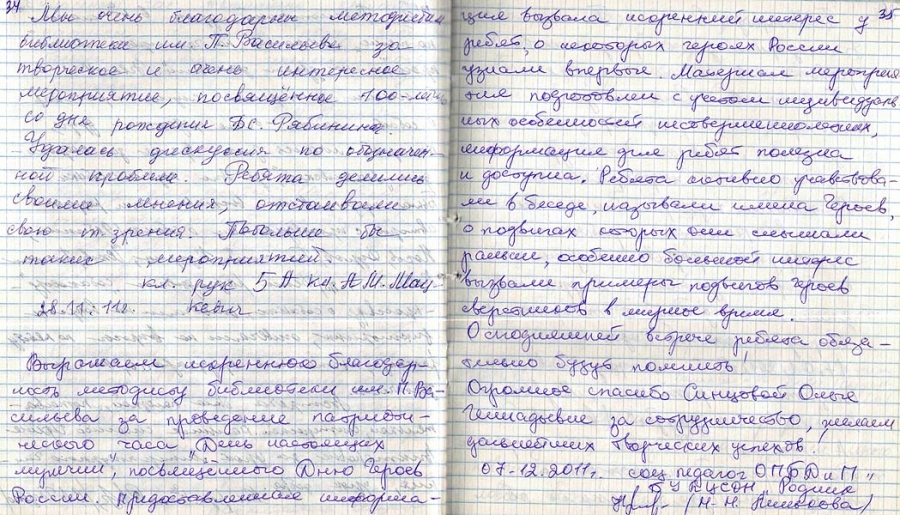 34
Мы очень благодарны методистам
библиотеки им. П. Васильева за
творческое и очень интересное
мероприятие, посвящённое 100-летию
со дня рождения Б.С. Рябинина.
Удалась дискуссия по обозначен-
ной проблеме. Ребята делились
своими мнения, отстаивали
свою т. зрения. Побольше бы
таких мероприятий.
кл. рук 5А кл.
28.11.11г.
Выражаем искреннюю благодар-
ность методисту библиотеки им. П. Ва-
сильева за проведение патриоти-
ческого часа „День настоящих
мужчин", посвящённого Дню Героев
России. Предоставленная информа-
35
ция вызвала искренний интерес у
ребят, о некоторых героях России
узнали впервые. Материал мероприя
тия подготовлен с учетом индивидуаль
ных особенностей несовершеннолетних,
информация для ребят полезна
и доступна. Ребята активно участвова-
ли в беседе, называли имена Героев,
о подвигах которых они слышали
раньше, особенно большой интерес
вызвали примеры подвигов Героев
сверстников в мирное время.
О сегодняшней встрече ребята обяза-
тельно будут помнить!
Огромное спасибо Синцовой Ольге
Геннадьевне за сотрудничество, желаем
дальнейших творческих успехов!
07.12.2011г. соц педагог ОПБДиП
БУ ВЦСОН „Родник"
(Н.Н. )